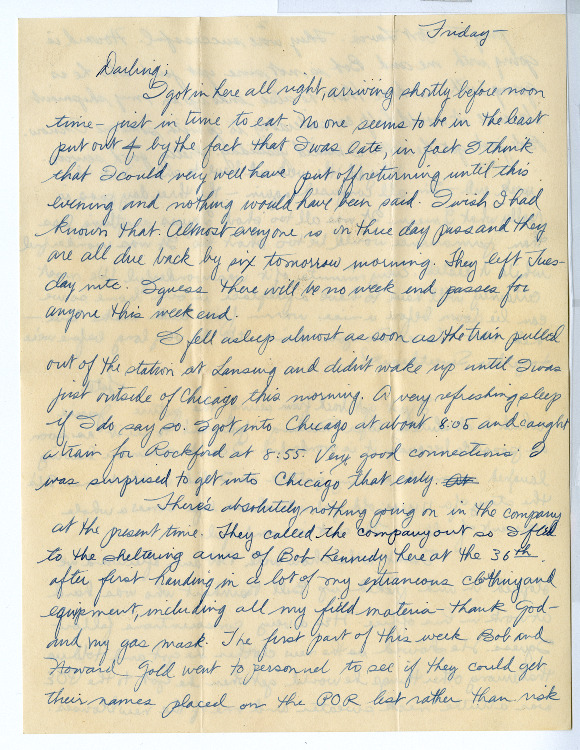 Friday-
Darling;
I got in here all right, arriving shortly before noon
time - just in time to eat. No one seems to be in the least
put out by the fact that I was late, in fact I think
that I could very well have put off returning until this
evening and nothing would have been said. I wish I had
known that. Almost everyone is on three day pass and they
are all due back by six tomorrow morning. They left Tues-
day nite. I guess there will be no week end passes for
anyone this week end.
I fell asleep almost as soon as the train pulled
out of the station at Lansing and didn't wake up until I was
just outside of Chicago this morning. A very refreshing sleep
if I do say so. I got into Chicago at about 8:05 and caught
a train for Rockford at 8:55. Very good connections. I
was surprised to get into Chicago that early.
There's absolutely nothing going on in the company
at the present time. They called the company out so I fled
to the sheltering arms of Bob Kennedy here at the 36th
after first handing in a lot of my extraneous clothing and
equipment, including all my field materia - thank God -
and my gas mask. The first part of this week Bob and
Howard Gold went to personnel to see if they could get
their names placed on the POR list rather than risk